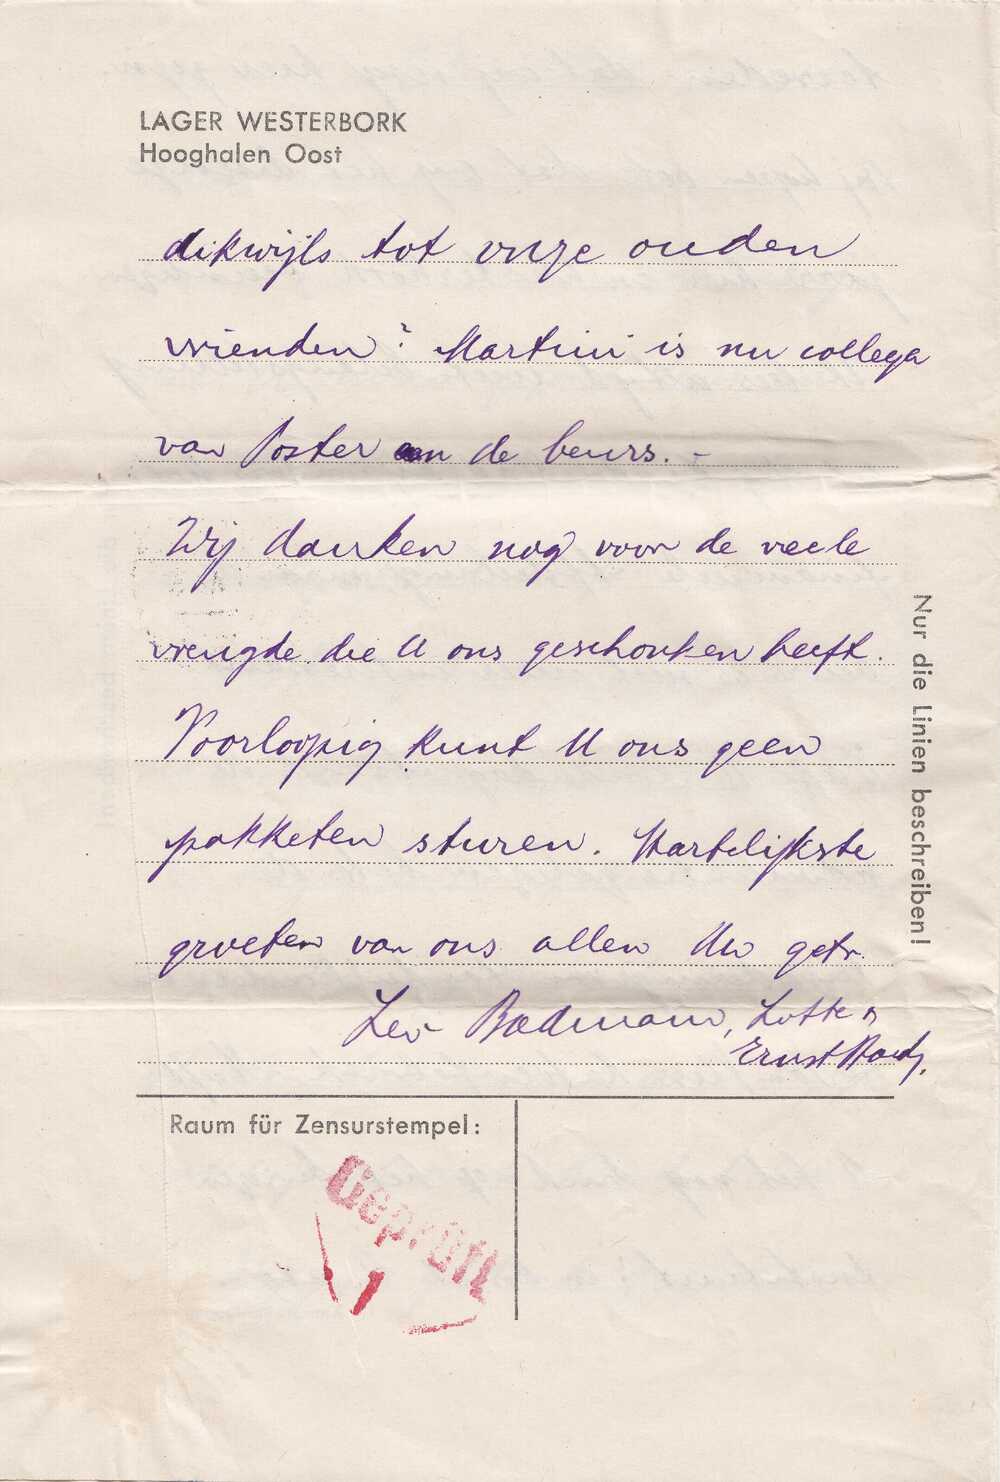 LAGER WESTERBORK
Hooghalen Oost
dikwijls tot onze ouden
vrienden? Martini is nu collega
van Poster aan de beurs. -
Wij danken nog voor de veele
vreugde die U ons geschonken heeft.
Voorloopig kunt U ons geen
pakketen sturen. Hartelijkste
groeten van ons allen Uw getr.
Leo Bodmann, Lotte
Ernst
Nur die Linien beschreiben!
Raum für Zensurstempel:
Geprüft
1